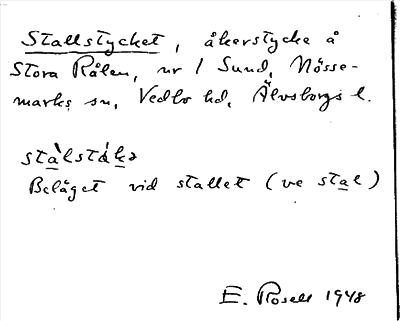 Stallstycket, åkerstycke å
Stora Rålen, nr 1 Sund, Nösse-
marks sn, Vedbo hd, Älvsborgs l.
stàlstákə
Beläget vid stallet (ve stal)
E. Rosell 1948